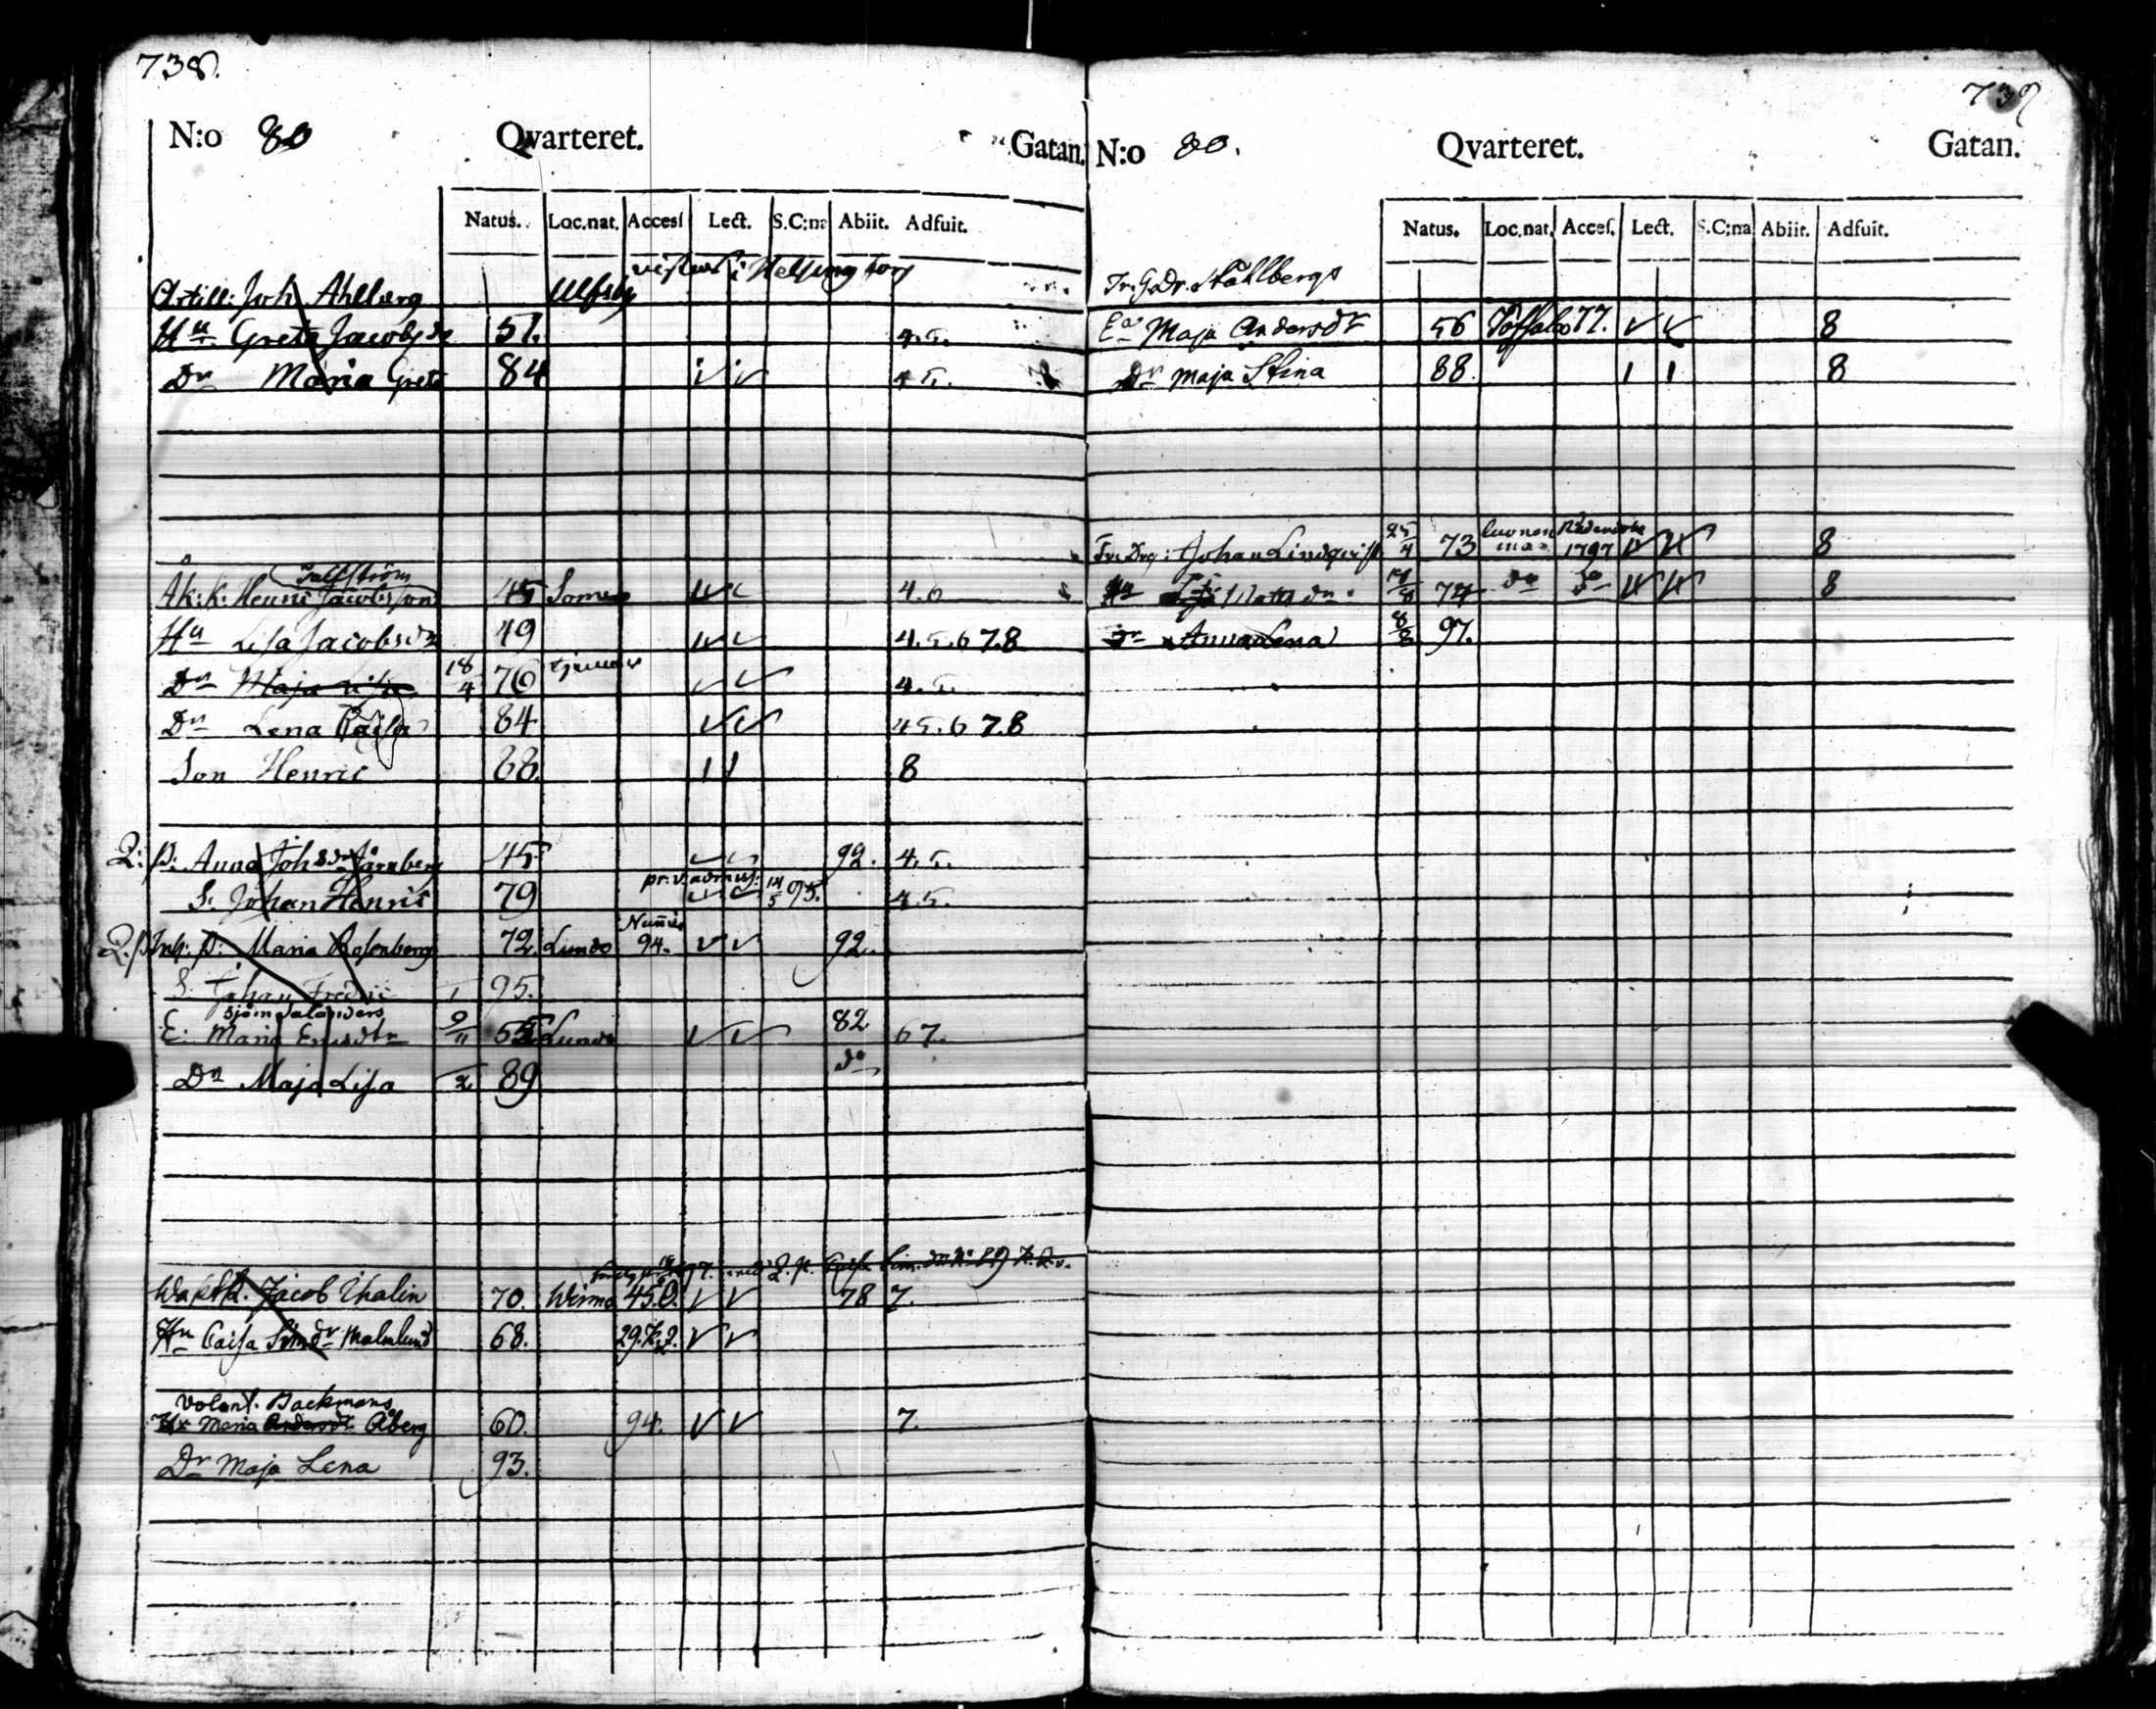 738.
N:o 80 Qvarteret. Gatan.
Natus. Loc.nat. Accesſ Lect. S.C:na Abiit. Adfuit.
vistas i Helsingfors
Artill: Joh Ahlberg Ulfsby
Hu Greta Jacobsdr 51. 4.5.
Dr Maria Greta 84 4 5.
Tallström
Åk: K: Henric Jacobsson 45 Somero 4.6
Hu Lisa Jacobsdr 49 4.5.6 7.8
Dr Maja Lisa 18/4 76 tjenar 4.5.
Dr Lena Caisa 84 4 5.6 7.8
Son Henric 88. 8
Q: P: Anna Johsdr Järnberg 45 92. 4.5.
pr: v: admis: 14/5 95.
S. Johan Henric 79 4.5.
Q. p Inh: p: Maria Rosenberg 72. Lundo 94. 92.
S. Johan Fredric 1 95.
Sjöm Salanders
E: Maria Ericsdtr 9/11 55 Lundo 82 67.
Dr Maja Lisa 2 89 do
Waktk. Jacob Thalin 70. Wirmo 45.O. 78 7.
Hu Caisa Simdr Malmlund 68. 29.K.Q.
Volont. Backmans
Hu Maria Andersdr Åberg 60. 94. 7.
Dr Maja Lena 93.
739
N:o 80. Qvarteret. Gatan.
Natus. Loc.nat. Acceſ. Lect. S.C:na Abiit. Adfuit.
Tr. G. Dr. Ståhlbergs
Ea Maja Andersdr 56 77. 8
Dr Maja Stina 88. 8
Fr: Drg: Johan Lindqvist 25/4 73 1797 8
Hu Matts dr 74 do do 8
Dr Anna Lena 8/8 97.